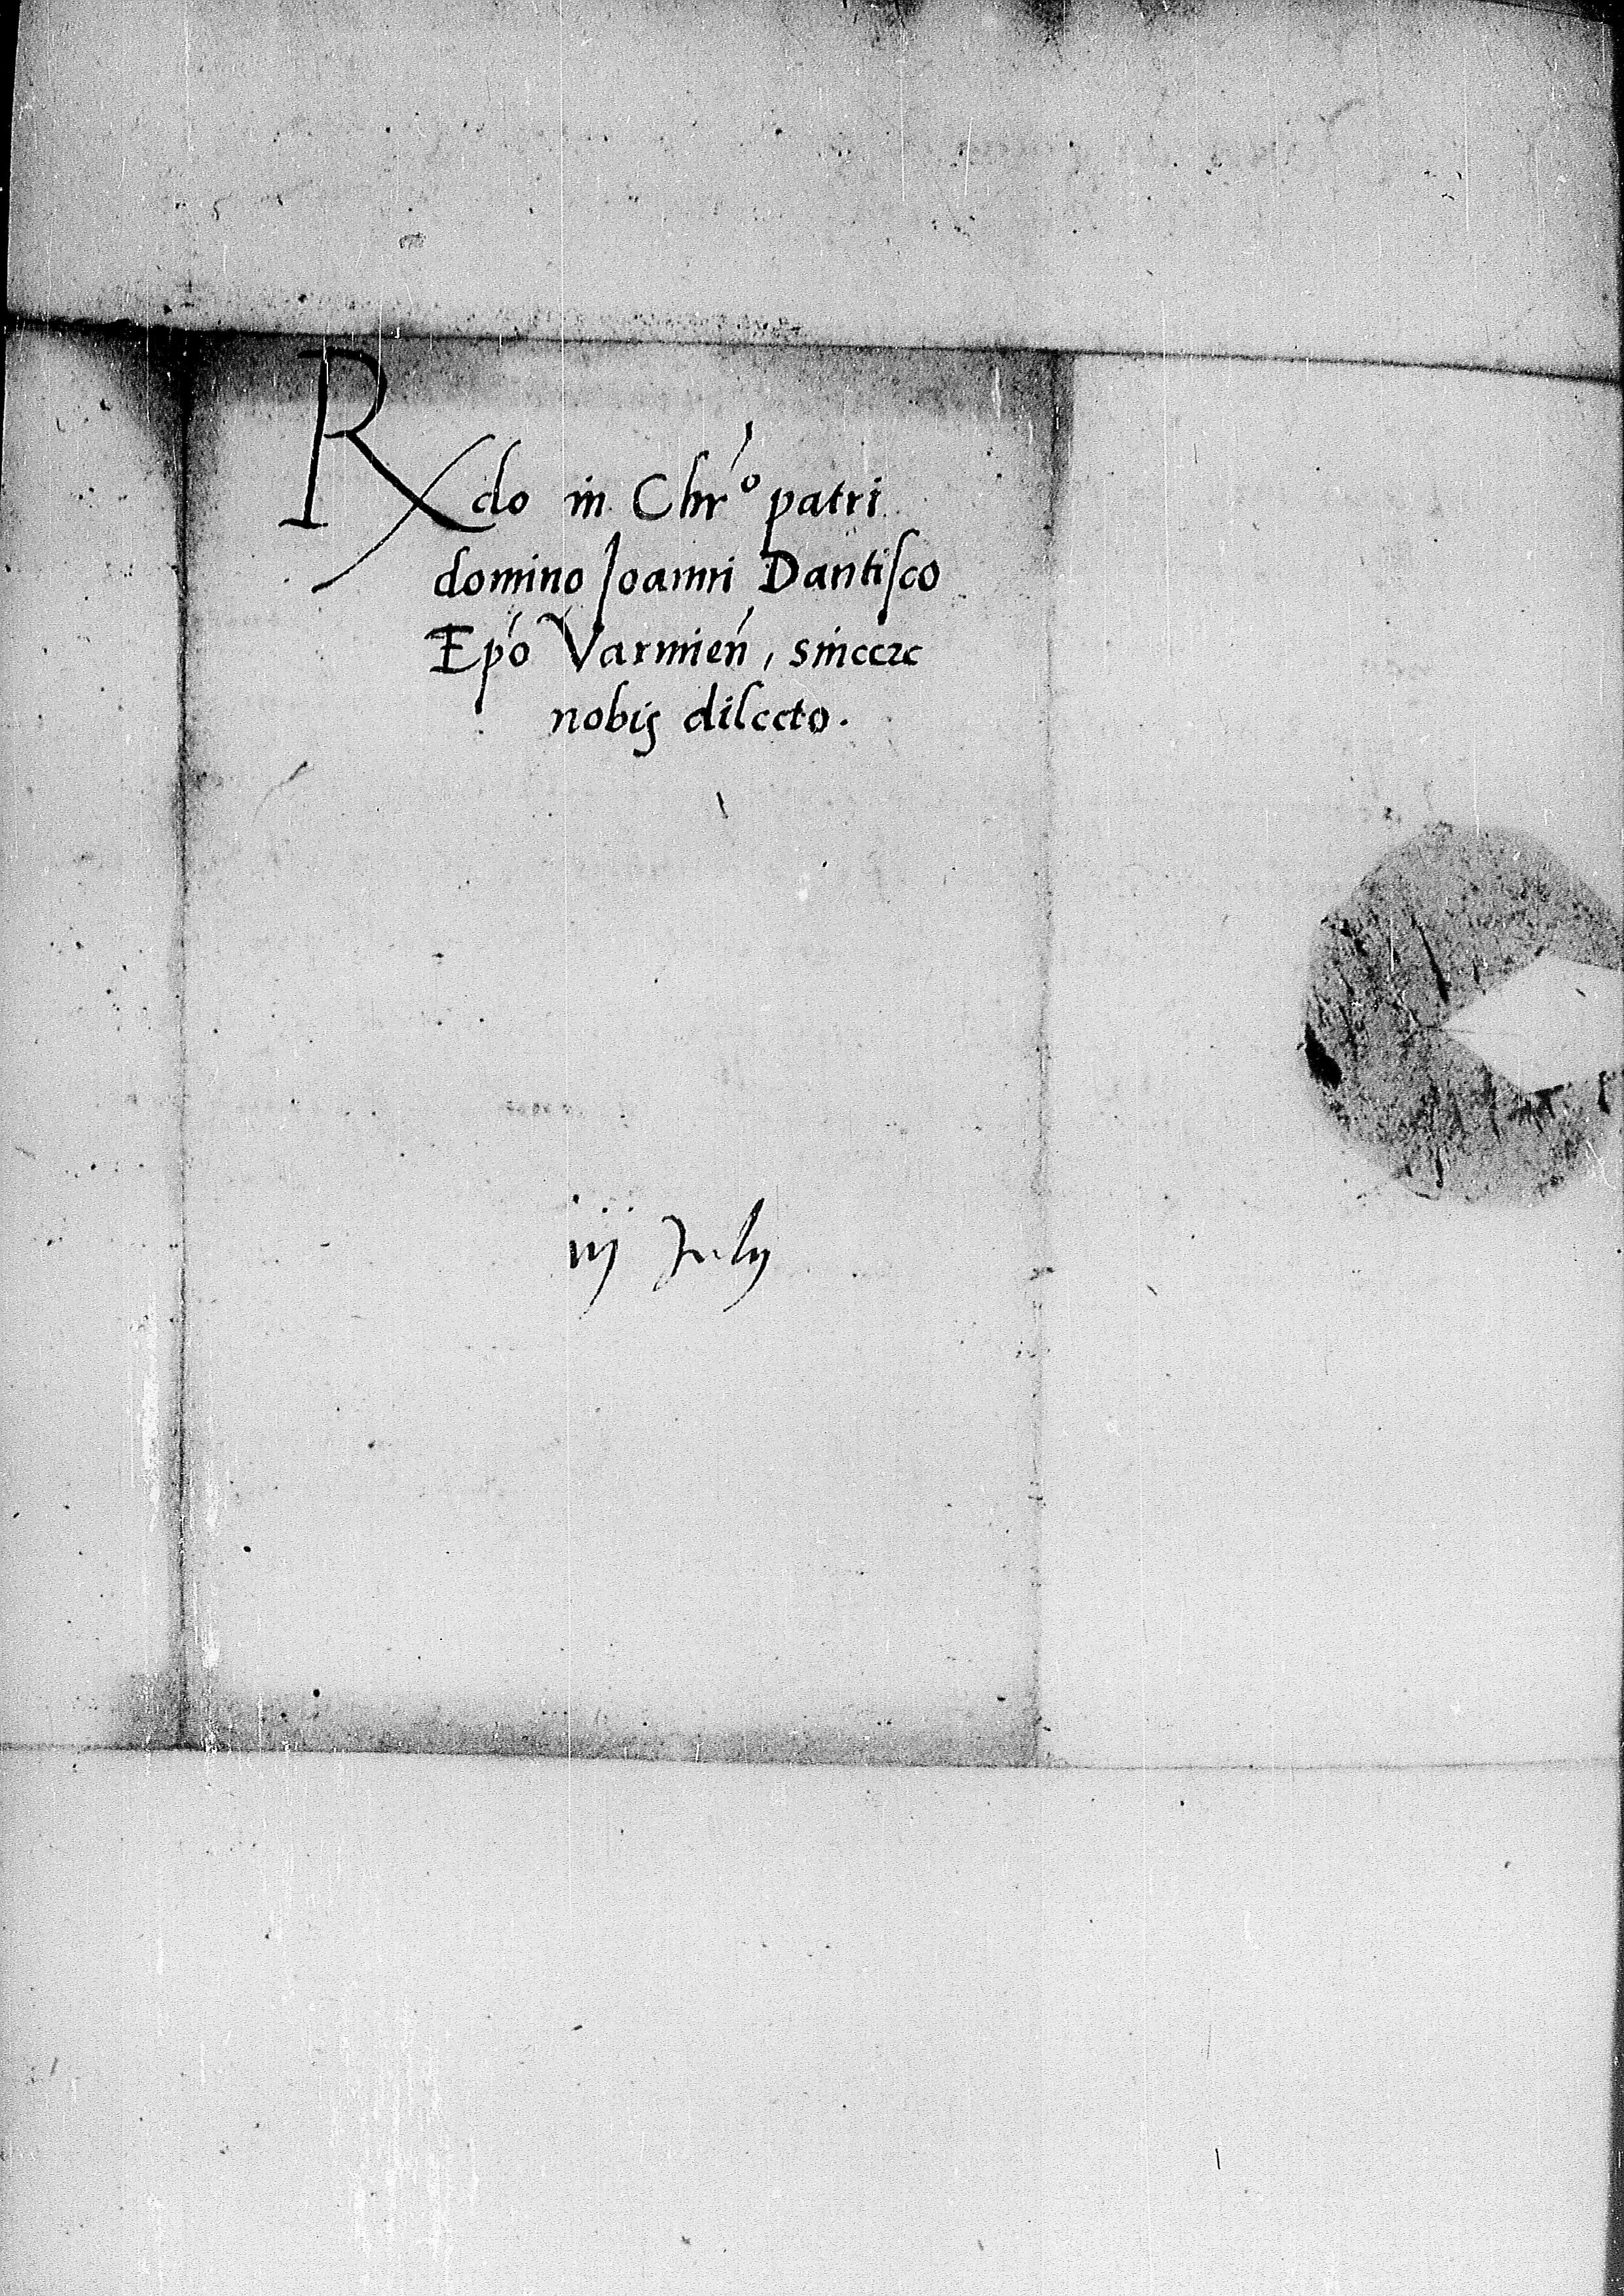 Rdo in Chro patri
domino Joanni Dantisco
Epo Varmien, sincere
nobis dilecto.
iij Julij